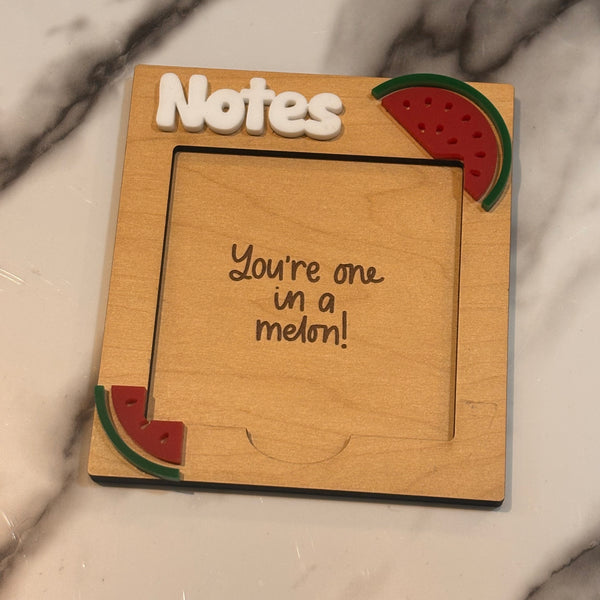 Notes
You're one
in a
melon!